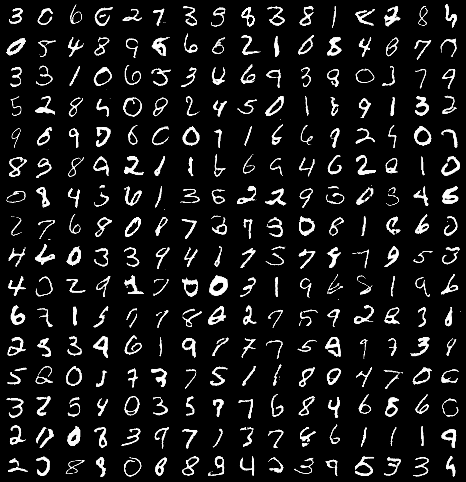 3 0 6 6 2 7 3 9 8 3 8 1 2 8 4
0 5 4 8 9 6 6 6 2 1 0 8 4 8 7 7
3 3 1 0 6 5 3 6 6 9 3 8 0 3 7 9
5 2 8 4 0 8 2 4 5 0 1 8 9 1 3 2
9 6 9 7 6 0 0 7 1 6 6 9 2 4 0 7
8 9 8 9 2 1 1 6 6 9 4 6 2 2 1 0
0 8 4 3 6 1 3 6 2 2 9 5 0 3 4 6
2 7 6 8 0 8 7 3 7 3 0 8 1 6 6 0
4 6 0 3 3 9 4 1 7 5 7 8 7 9 5 3
4 0 2 9 1 7 0 0 3 1 9 6 5 1 9 6
6 7 1 5 7 7 8 2 2 7 5 9 2 8 3 1
2 5 3 9 6 1 9 7 7 7 5 8 9 7 3 9
5 2 0 1 7 3 7 5 1 1 8 0 4 7 0 6
3 2 5 4 0 3 5 7 7 6 8 4 6 8 6 0
2 0 8 3 9 7 1 3 7 8 6 1 1 1 9
2 0 8 8 0 8 8 9 4 2 3 9 5 3 3 4